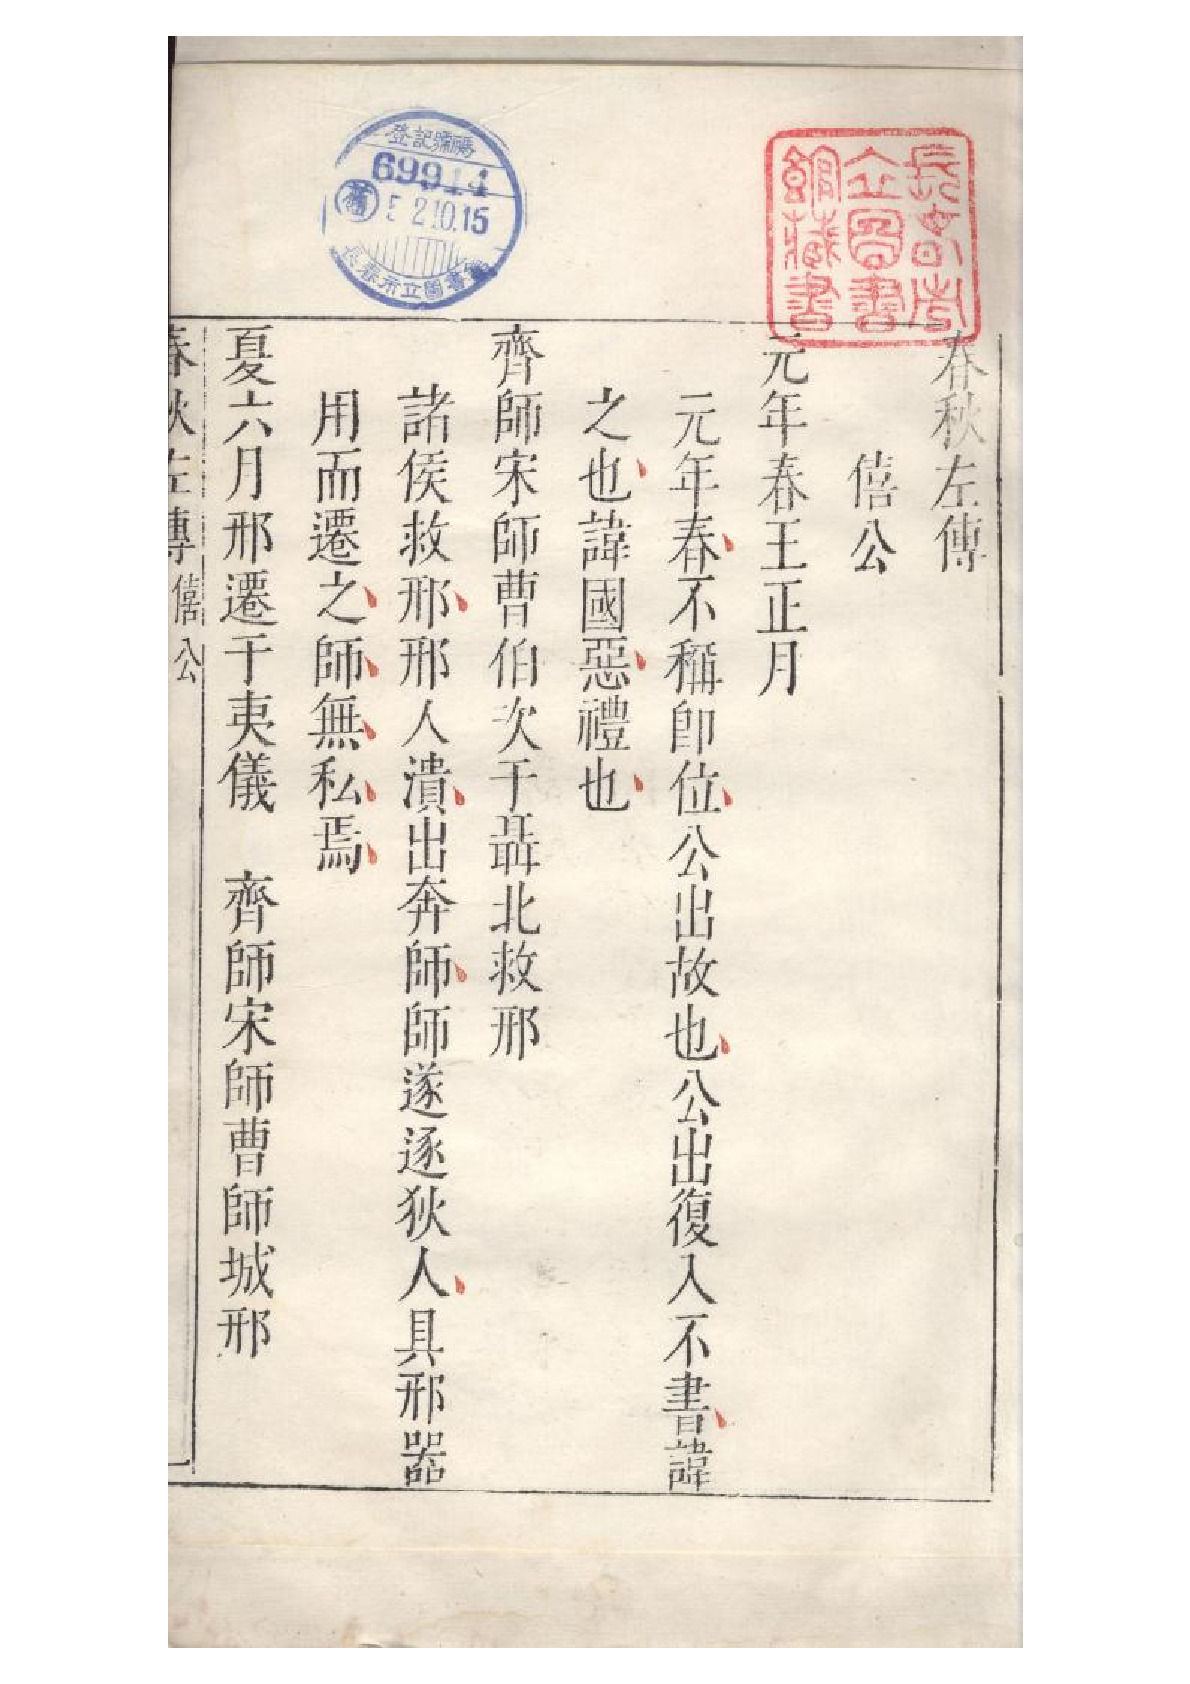 春秋左傳
僖公
元年春王正月
元年春不稱卽位公出故也公出復入不書諱
之也諱國惡禮也
齊師宋師曹伯次于聶北救邢
諸侯救邢邢人潰出奔師師遂逐狄人具邢器
用而遷之師無私焉
夏六月邢遷于夷儀　齊師宋師曹師城邢
春秋左傳 僖公
一
長春市
立圖書
館藏書
登記號碼
69914
舊
52.10.15
長春市立圖書館